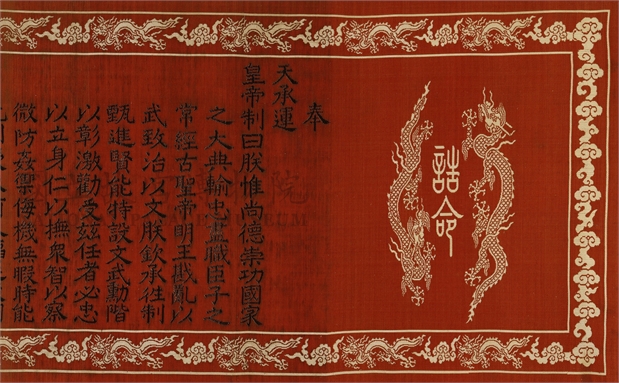 誥命
奉
天承運
皇帝制曰朕惟尚德崇功國家
之大典輸忠盡職臣子之
常經古聖帝明王戡亂以
武致治以文朕欽承往制
甄進賢能特設文武勳階
以彰激勸受茲任者必忠
以立身仁以撫衆智以察
微防姦禦侮機無暇時能